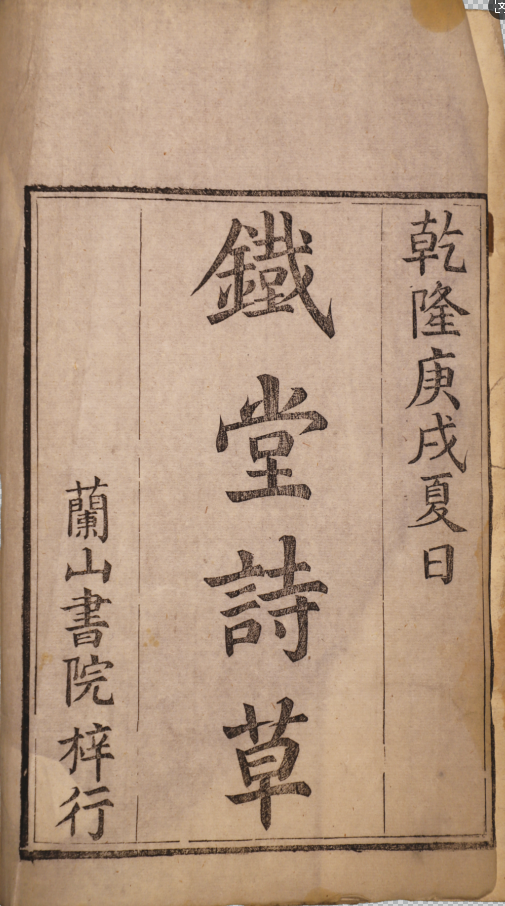 乾隆庚戌夏日
鐵堂詩草
蘭山書院梓行